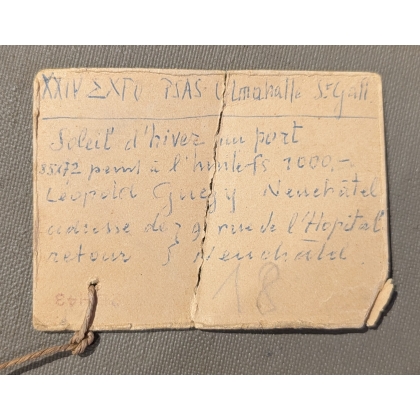 XXIV EXPO PSAS. Olmahalle St Gall
Soleil d'hiver au port
85x72 peint à l'huile fs 1000,-
Léopold Gugy Neuchâtel
adresse de } 9 rue de l'Hopital
retour } Neuchâtel
18